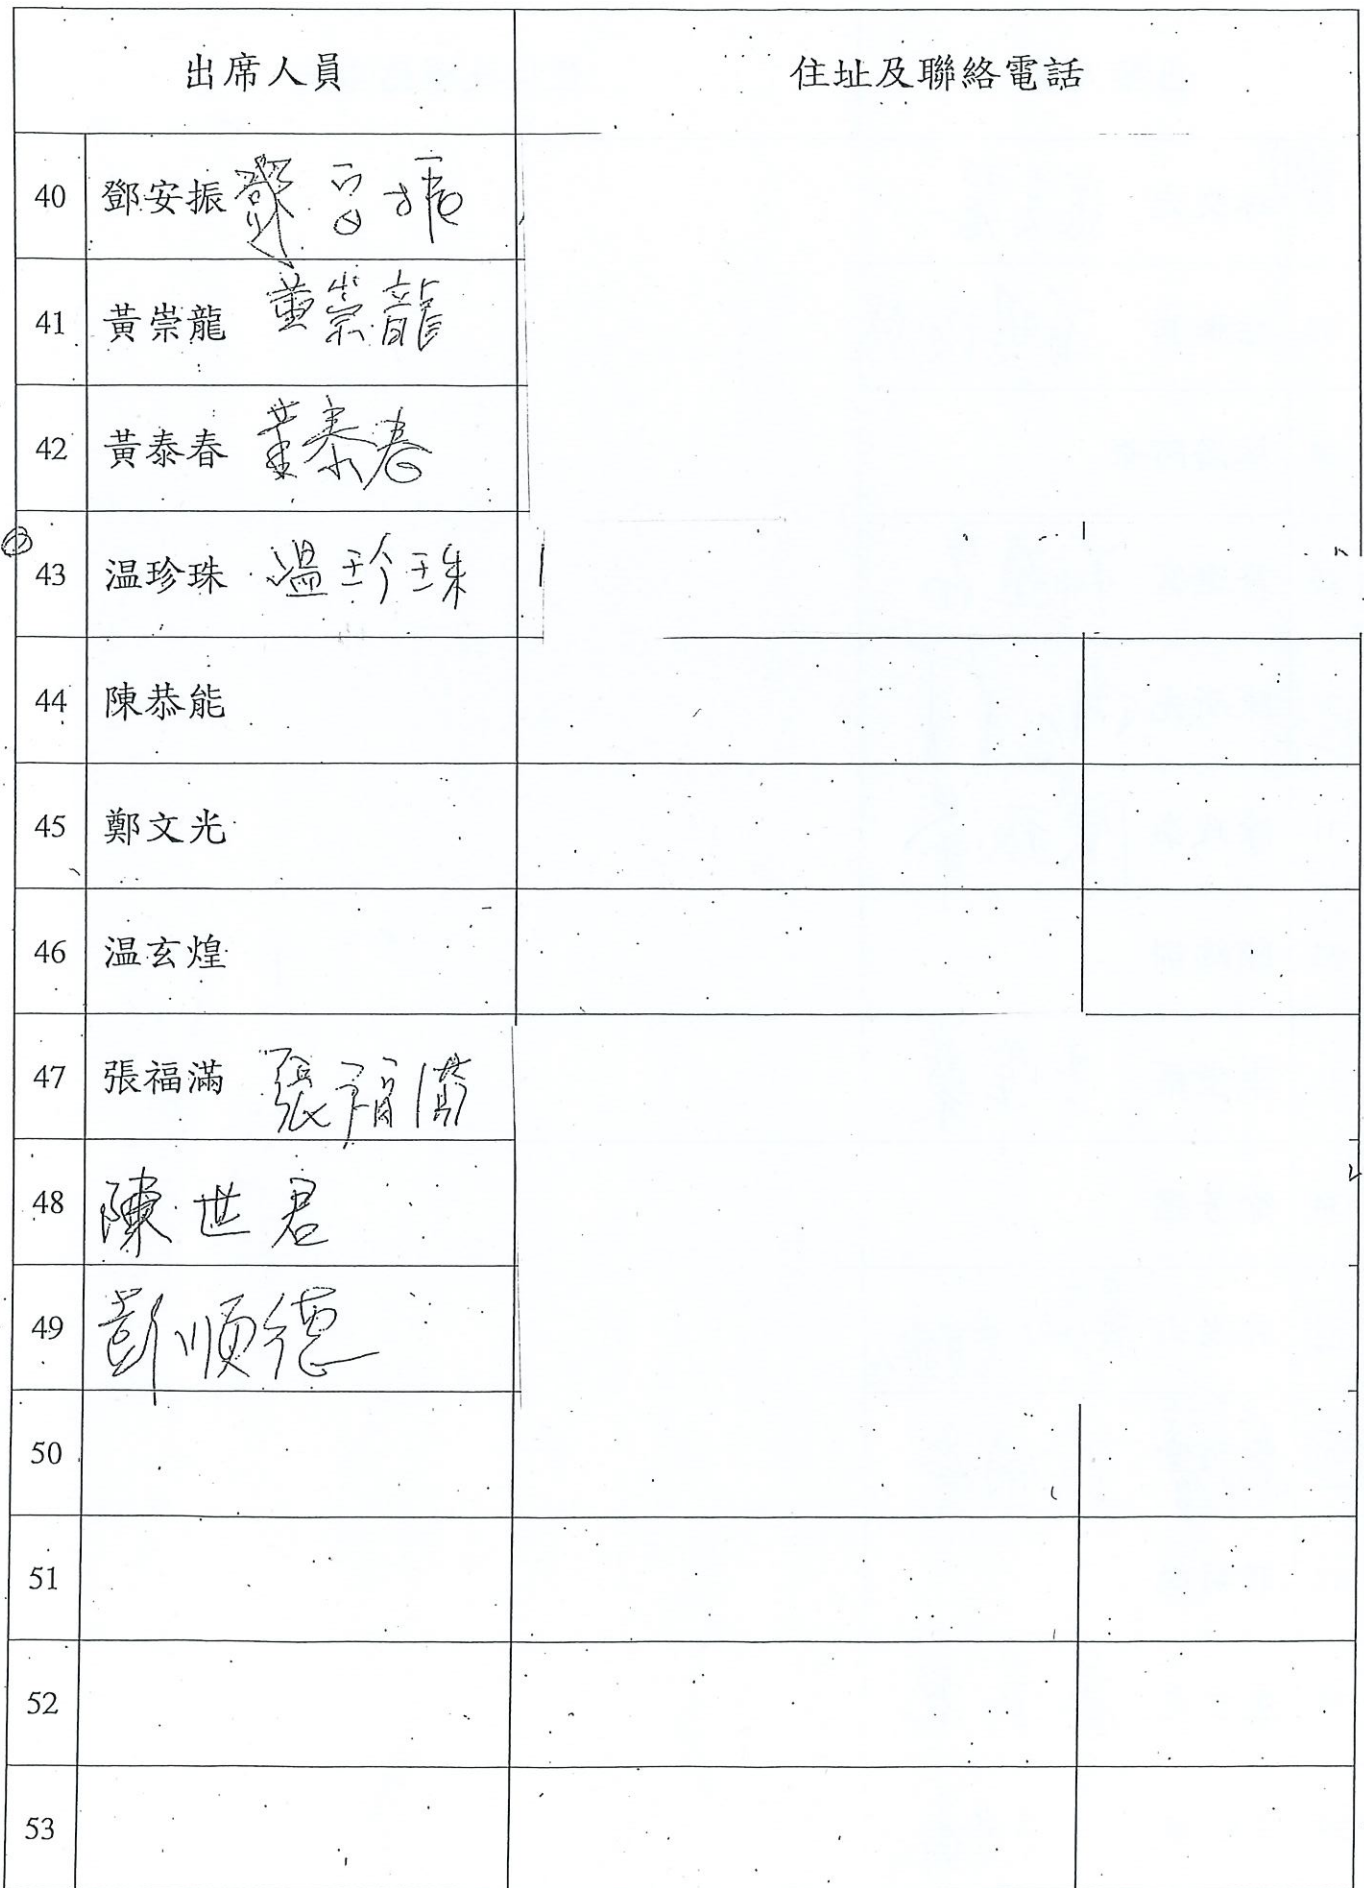 出席人員 住址及聯絡電話
40 鄧安振 鄧安振
41 黃崇龍 黃崇龍
42 黃泰春 黃泰春
43 温珍珠 溫珍珠
44 陳恭能
45 鄭文光
46 温玄煌
47 張福滿 張福滿
48 陳世君
49 彭順德
50
51
52
53